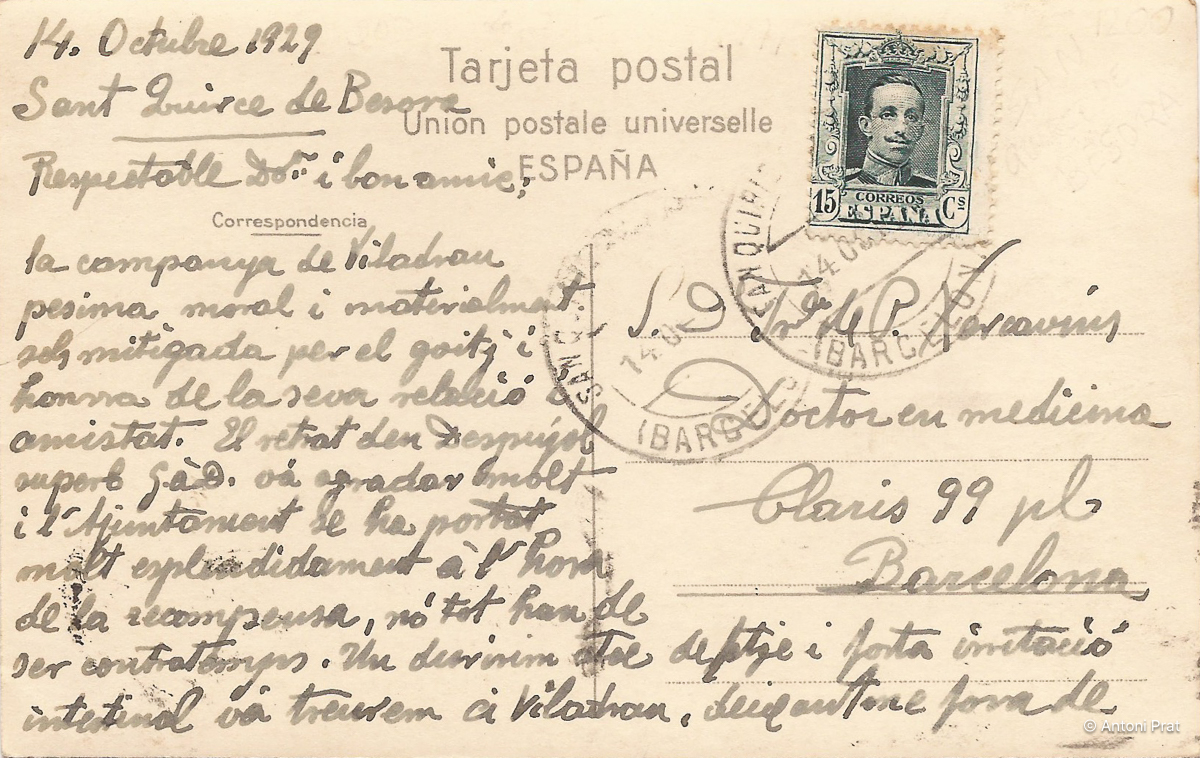 14. Octubre 1929
Sant Quirce de Besora
Tarjeta postal
Union postale universelle
ESPAÑA
15 CORREOS ESPAÑA Cs
Respectable Dor i bon amic;
Correspondencia
la campanya de Viladrau
pesima moral i materialment
sols mitigada per el goitj i
honrra de la seva relació i
amistat. El retrat den Despujol
superb G à D. vá agradar molt
i l'Ajuntament se ha portat
molt esplendidament à l' hora
de la recompensa, nó tot han de
ser contratemps. Un
deptje i forta irritació
intestinal vá treurem a Viladrau, deixantme fora de
Sr D Jph de P. Xercavins
Doctor en medicina
Claris 99 pl
Barcelona
14 OC
(BARCELON
14 O
(BARCEL
© Antoni Prat